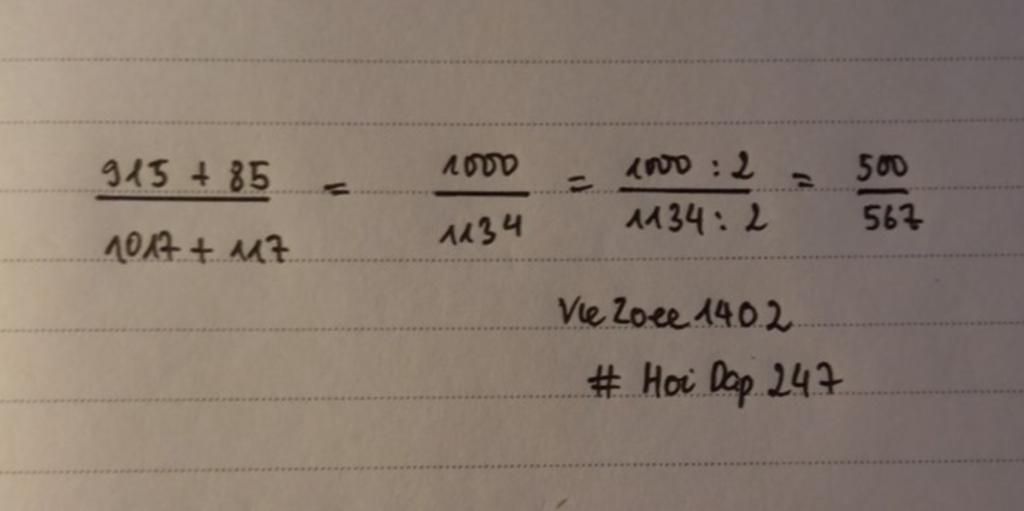 915 + 85 / 1017 + 117 = 1000 / 1134 = 1000 : 2 / 1134 : 2 = 500 / 567
VieZoee1402
# Hoi Dap 247